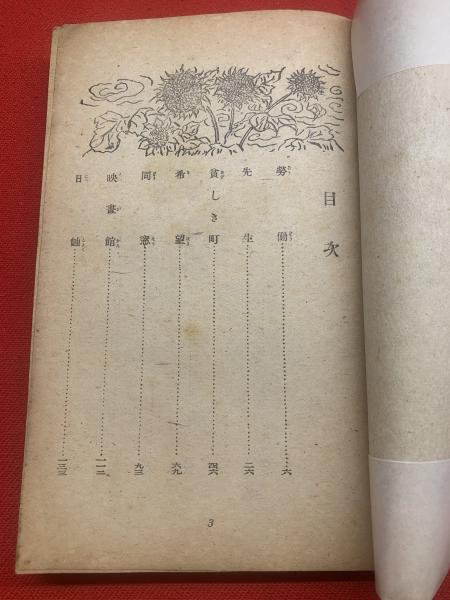 目次
勞働 六
先生 二六
貧しき町 四六
希望 六九
同窓 九三
映畫館 一一二
日蝕 一三三
3